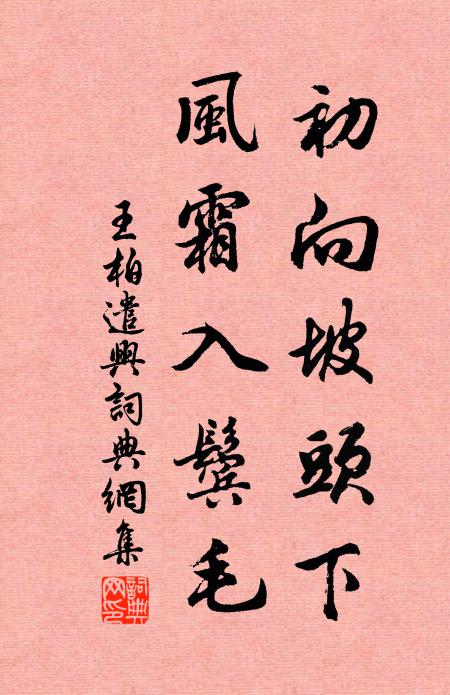 初向坡頭下
風霜入鬢毛
王柏遣興詞典網集
詞典網印